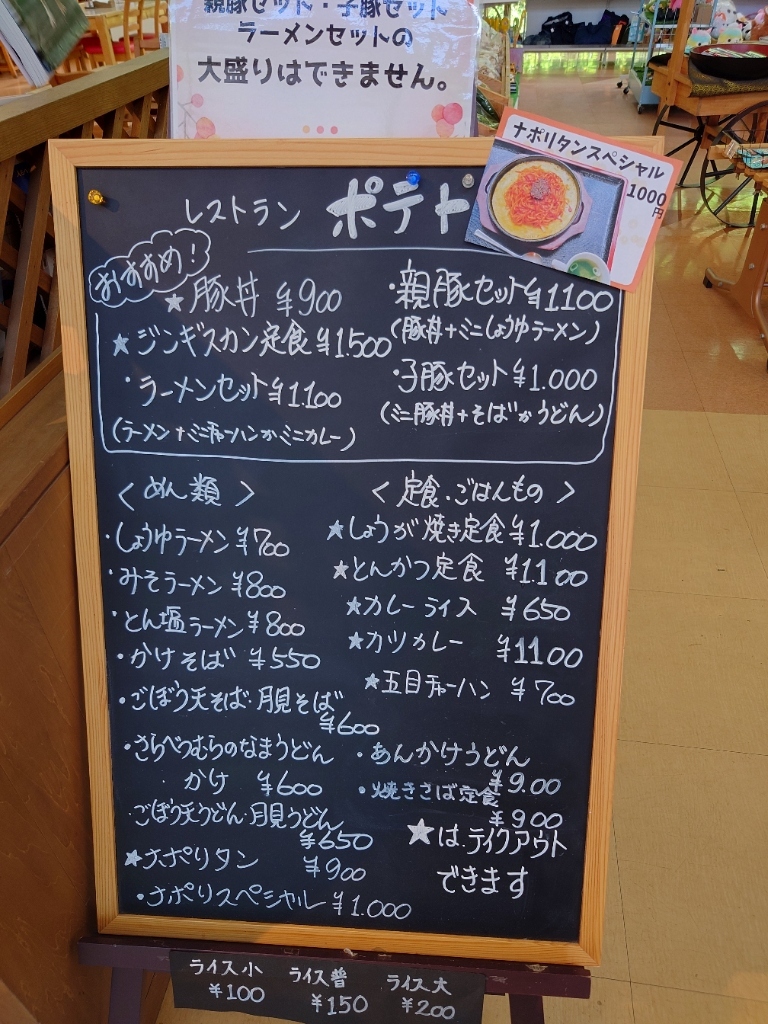 親豚セット・子豚セット
ラーメンセットの
大盛りはできません。
ナポリタンスペシャル
1000円
レストラン ポテト
おすすめ!
★豚丼 ¥900
★ジンギスカン定食 ¥1.500
・ラーメンセット ¥1.100
(ラーメン+ミニチャーハンかミニカレー)
・親豚セット ¥1100
(豚丼+ミニしょうゆラーメン)
・子豚セット ¥1.000
(ミニ豚丼+そばかうどん)
<めん類>
・しょうゆラーメン ¥700
・みそラーメン ¥800
・とん塩ラーメン ¥800
・かけそば ¥550
・ごぼう天そば・月見そば
¥600
・さらべつむらのなまうどん
かけ ¥600
ごぼう天うどん・月見うどん
¥650
★ナポリタン ¥900
・ナポリスペシャル ¥1.000
<定食・ごはんもの>
★しょうが焼き定食 ¥1.000
★とんかつ定食 ¥1.100
★カレーライス ¥650
★カツカレー ¥1100
★五目チャーハン ¥700
・あんかけうどん
¥9.00
・焼きさば定食
¥900
★は.テイクアウト
できます
ライス小 ライス普 ライス大
¥100 ¥150 ¥200